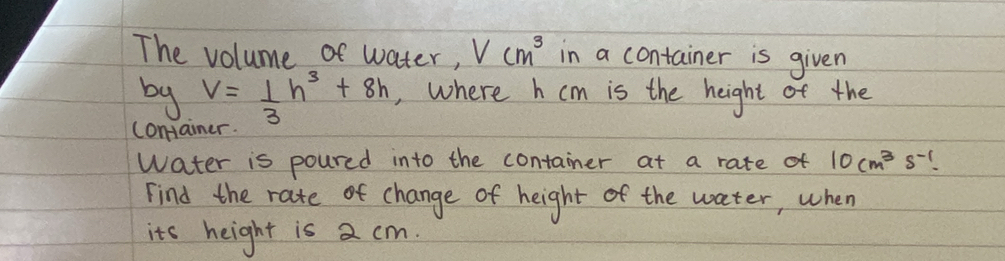 The volume of water, V cm³ in a container is given
by V = 1/3 h³ + 8h, where h cm is the height of the
container.
Water is poured into the container at a rate of 10 cm³ s⁻¹.
Find the rate of change of height of the water, when
its height is 2 cm.